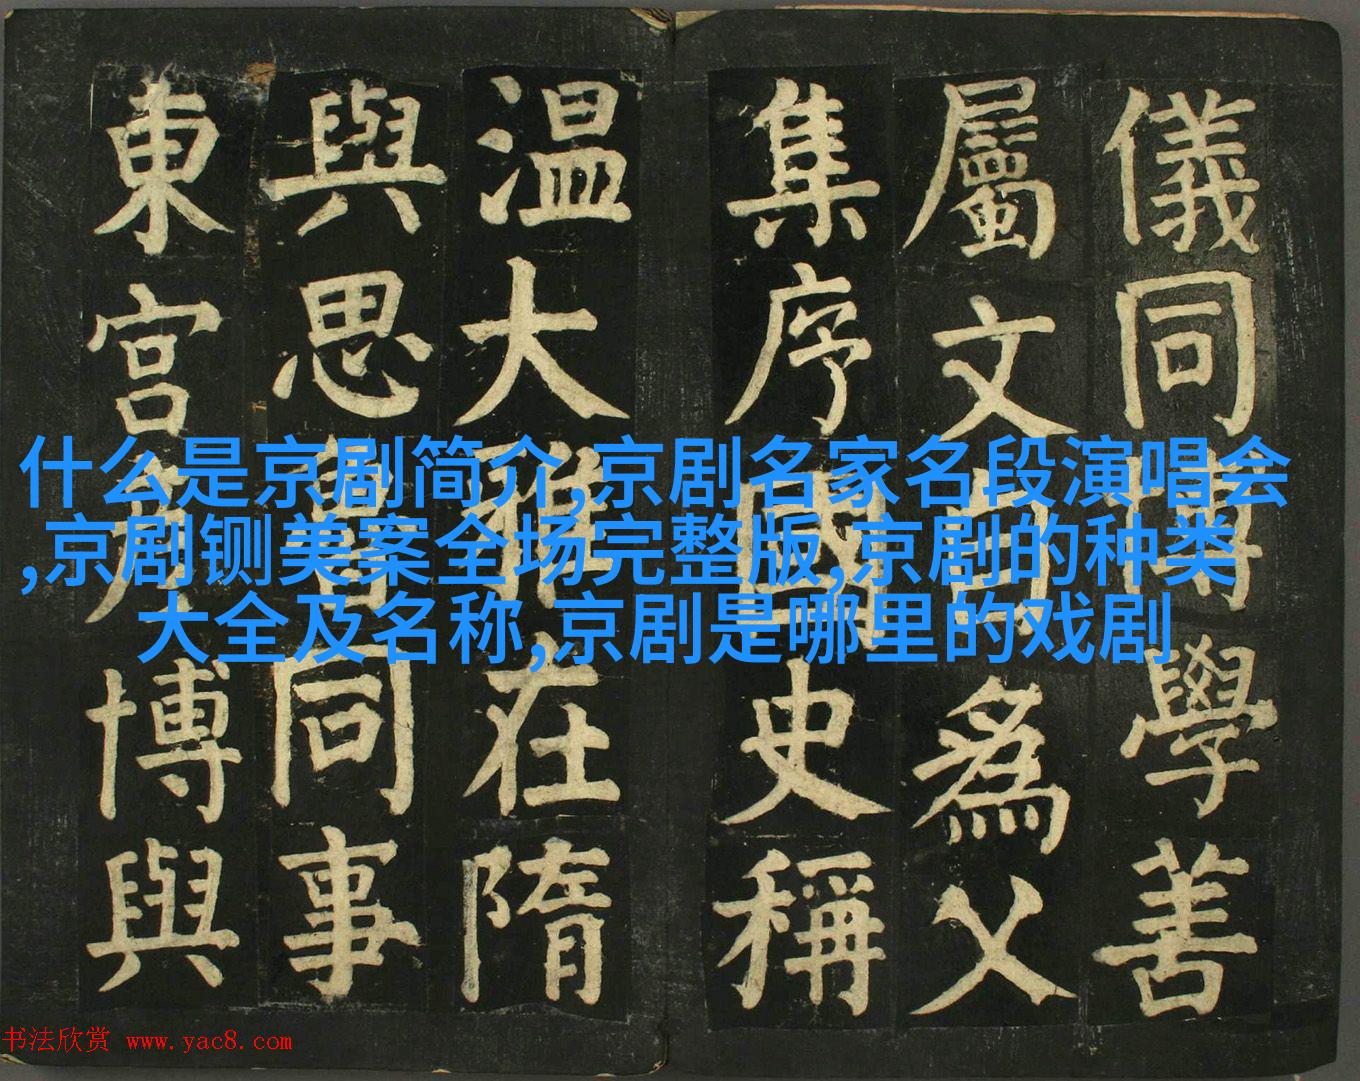 儀同博學善
屬文自為父
集序國史稱
温大雅在隋
與思魯同事
東宮彥博與
什么是京剧简介,京剧名家名段演唱会
,京剧铡美案全场完整版,京剧的种类
大全及名称,京剧是哪里的戏剧
书法欣赏 www.yac8.com